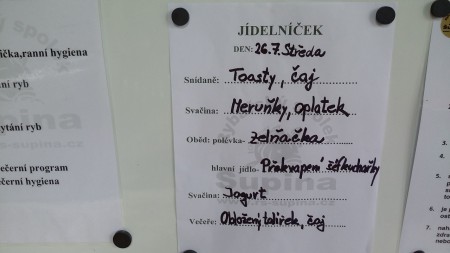 ička,ranní hygiena
ní ryb
ytání ryb
ečerní program
ečerní hygiena
JÍDELNÍČEK
DEN: 26.7. Středa
Snídaně: Toasty, čaj
Svačina: Meruňky, oplatek
Oběd: polévka- zelňačka
hlavní jídlo- Překvapení šéfkuchařky
Svačina: Jogurt
Večeře: Obložený talířek, čaj
3.
4.
5.
6. je
7. nah